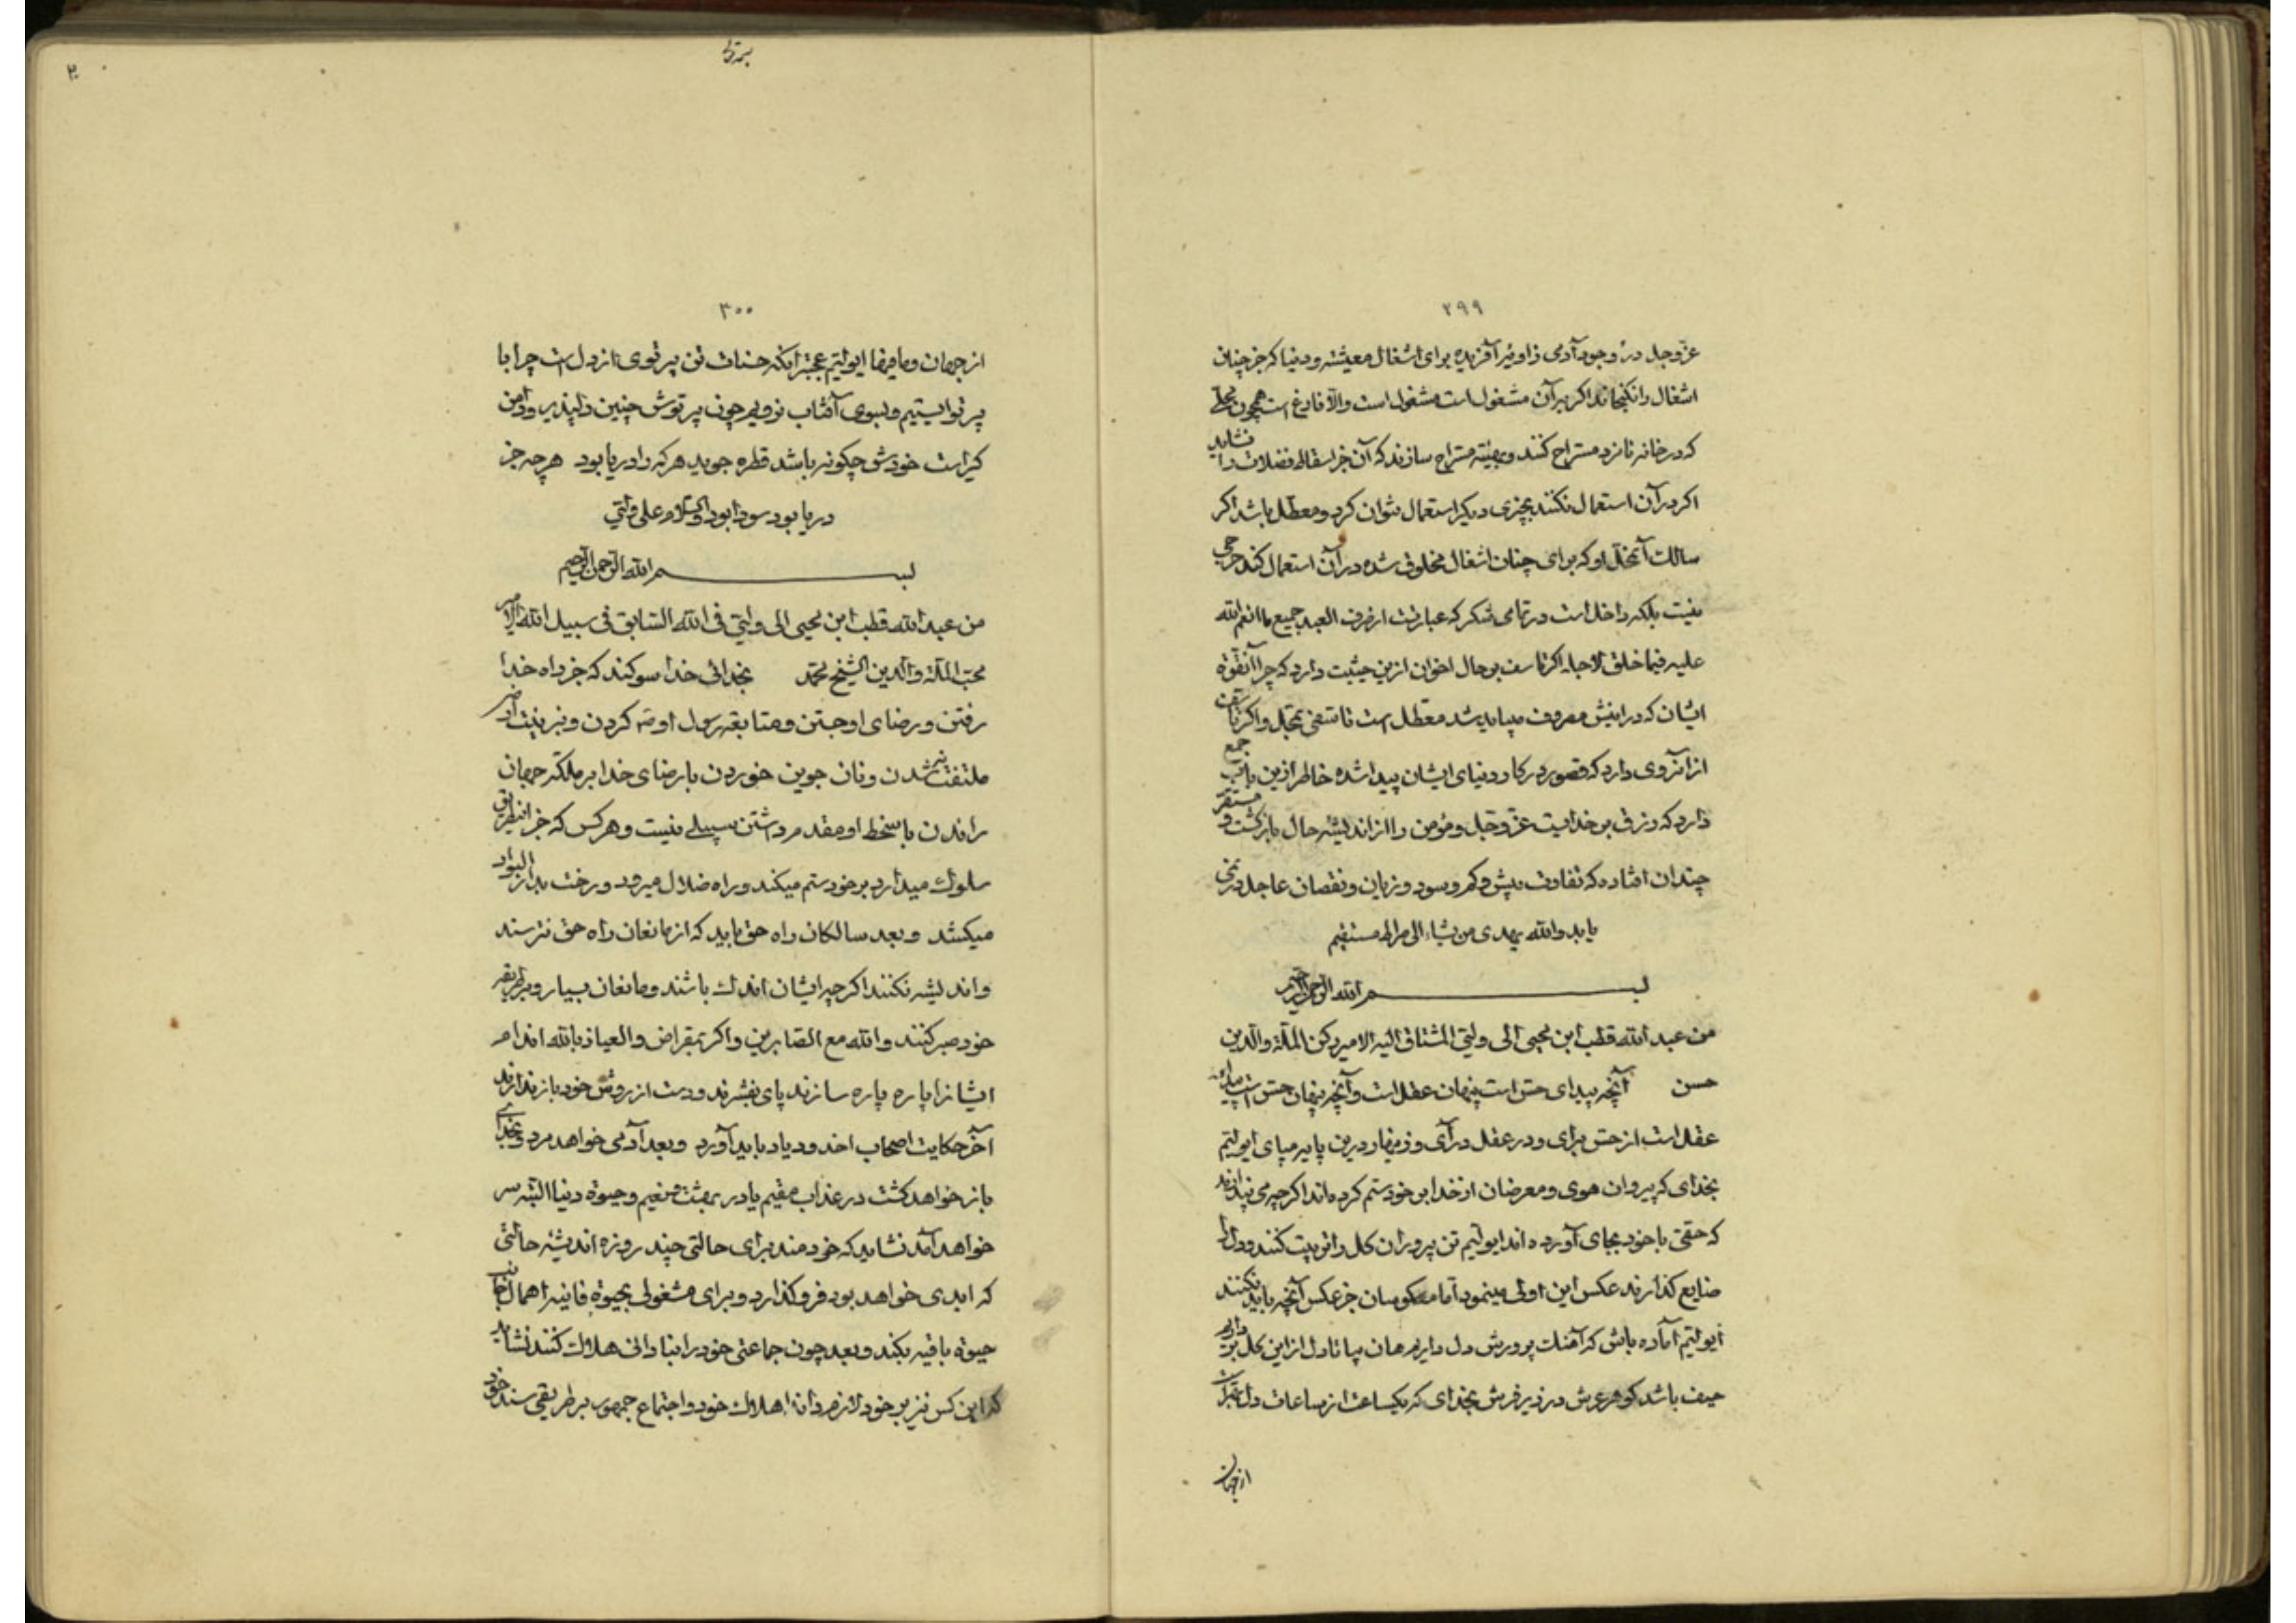 ۲۹۹
عزّ و جل در وجود آدمی زاویه آفریده برای اشغال معیشته و دنیا که جز چنان
اشغال را نگنجاند اگر بر آن مشغول است مشغول است والا فارغ است همچون محلی
که در خانه نامزد مستراح کنند و بهیئته مستراح سازند که آن جز اسقاط فضلات را نشاید
اگر در آن استعمال نکنند بچیزی دیگر استعمال نتوان کرد و معطل باشد اگر
سالک آن محل او که برای چنان اشغال مخلوق شده در آن استعمال کند حرجی
نیست بلکه داخل است در تمامی شکر که عبارتست از صرف العبد جمیع ما انعم الله
علیه فیما خلق لاجله اگر تاسف بر حال اخوان ازین حیثیت دارد که چرا آنقوة
ایشان که در اینش مصروف میباید شد معطل است تاسفی بمحل و اگر تاسف
از آنروی دارد که قصور در کار و دنیای ایشان پیدا شده خاطر ازین باب جمع
دارد که رزق بر خدایست عزّ و جل و مؤمن را از اندیشه حال بازگشت و مستقر
چندان افتاده که تفاوت بیش و کم و سود و زیان و نقصان عاجل در نمی
یابد والله یهدی من یشاء الی صراط مستقیم
بسم الله الرحمن الرحیم
من عبد الله قطب ابن یحیی الی ولیی المشتاق الیه الامیر رکن الملة والدین
حسن آنچه پیدای حس است پنهان عقل است و آنچه پنهان حس است پیدای
عقل است از حس برای و در عقل درآی و زینهار درین پایه مپای ای ولیم
بخدای که پیروان هوی و معرضان از خدا بر خود ستم کرده اند اگر چه می پندارند
که حقی با خود بجای آورده اند ای ولیم تن پروران گل را تربیت کنند و دل را
ضایع گذارند عکس این اولی مینمود اما معکوسان جز عکس آنچه باید نکنند
ای ولیم آماده باش که آهنگ پرورش دل داریم هان بیا تا دل از این گل برداریم
حیف باشد گوهر عرش در زیر فرش بخدای که یکساعت از ساعات دل بهتر است
از جهان
۳۰۰
از جهان و ما فیها ای ولیم عجبتر آنکه حسنات تن پرتوی از دل است چرا با
پرتو ایستیم و بسوی آفتاب نرویم چون پرتوش چنین دلپذیر و دامن
گیر است خودش چگونه باشد قطره جوید هر که را دریا بود هر چه جز
دریا بود سودا بود والسلام علی ولیی
بسم الله الرحمن الرحیم
من عبد الله قطب ابن یحیی الی ولیی فی الله السابق فی سبیل الله الامیر
محب الملة والدین الشیخ محمد بخدائی خدا سوگند که جز راه خدا
رفتن و رضای او جستن و متابعة رسول او ص کردن و بزینت
ملتفت نشدن و نان جوین خوردن با رضای خدا بر ملکت جهان
راندن با سخط او مقدم داشتن سبیلی نیست و هر کس که جز این طریق
سلوک میدارد بر خود ستم میکند و راه ضلال میرود و رخت بدار البوار
میکشد و بعد سالکان راه حق باید که از مانعان راه حق نترسند
و اندیشه نکنند اگر چه ایشان اندک باشند و مانعان بسیار و بر طریقه
خود صبر کنند والله مع الصابرین و اگر بمقراض والعیاذ بالله اندام
ایشانرا پاره پاره سازند پای بفشرند و دست از روش خود باز ندارند
آخر حکایت اصحاب اخدود یاد باید آورد و بعد آدمی خواهد مرد و بخدای
باز خواهد گشت در عذاب مقیم یا در بهشت نعیم و حیوة دنیا البته بسر
خواهد آمد نشاید که خردمند برای حالتی چند روزه اندیشه حالتی
که ابدی خواهد بود فرو گذارد و برای مشغولی بحیوة فانیه اهمال جانب
حیوة باقیه بکند و بعد چون جماعتی خود را بنادانی هلاک کنند نشاید
که این کس نیز بر خود لازم داند اهلاک خود و اجتماع جمهور بر طریقی سند خود